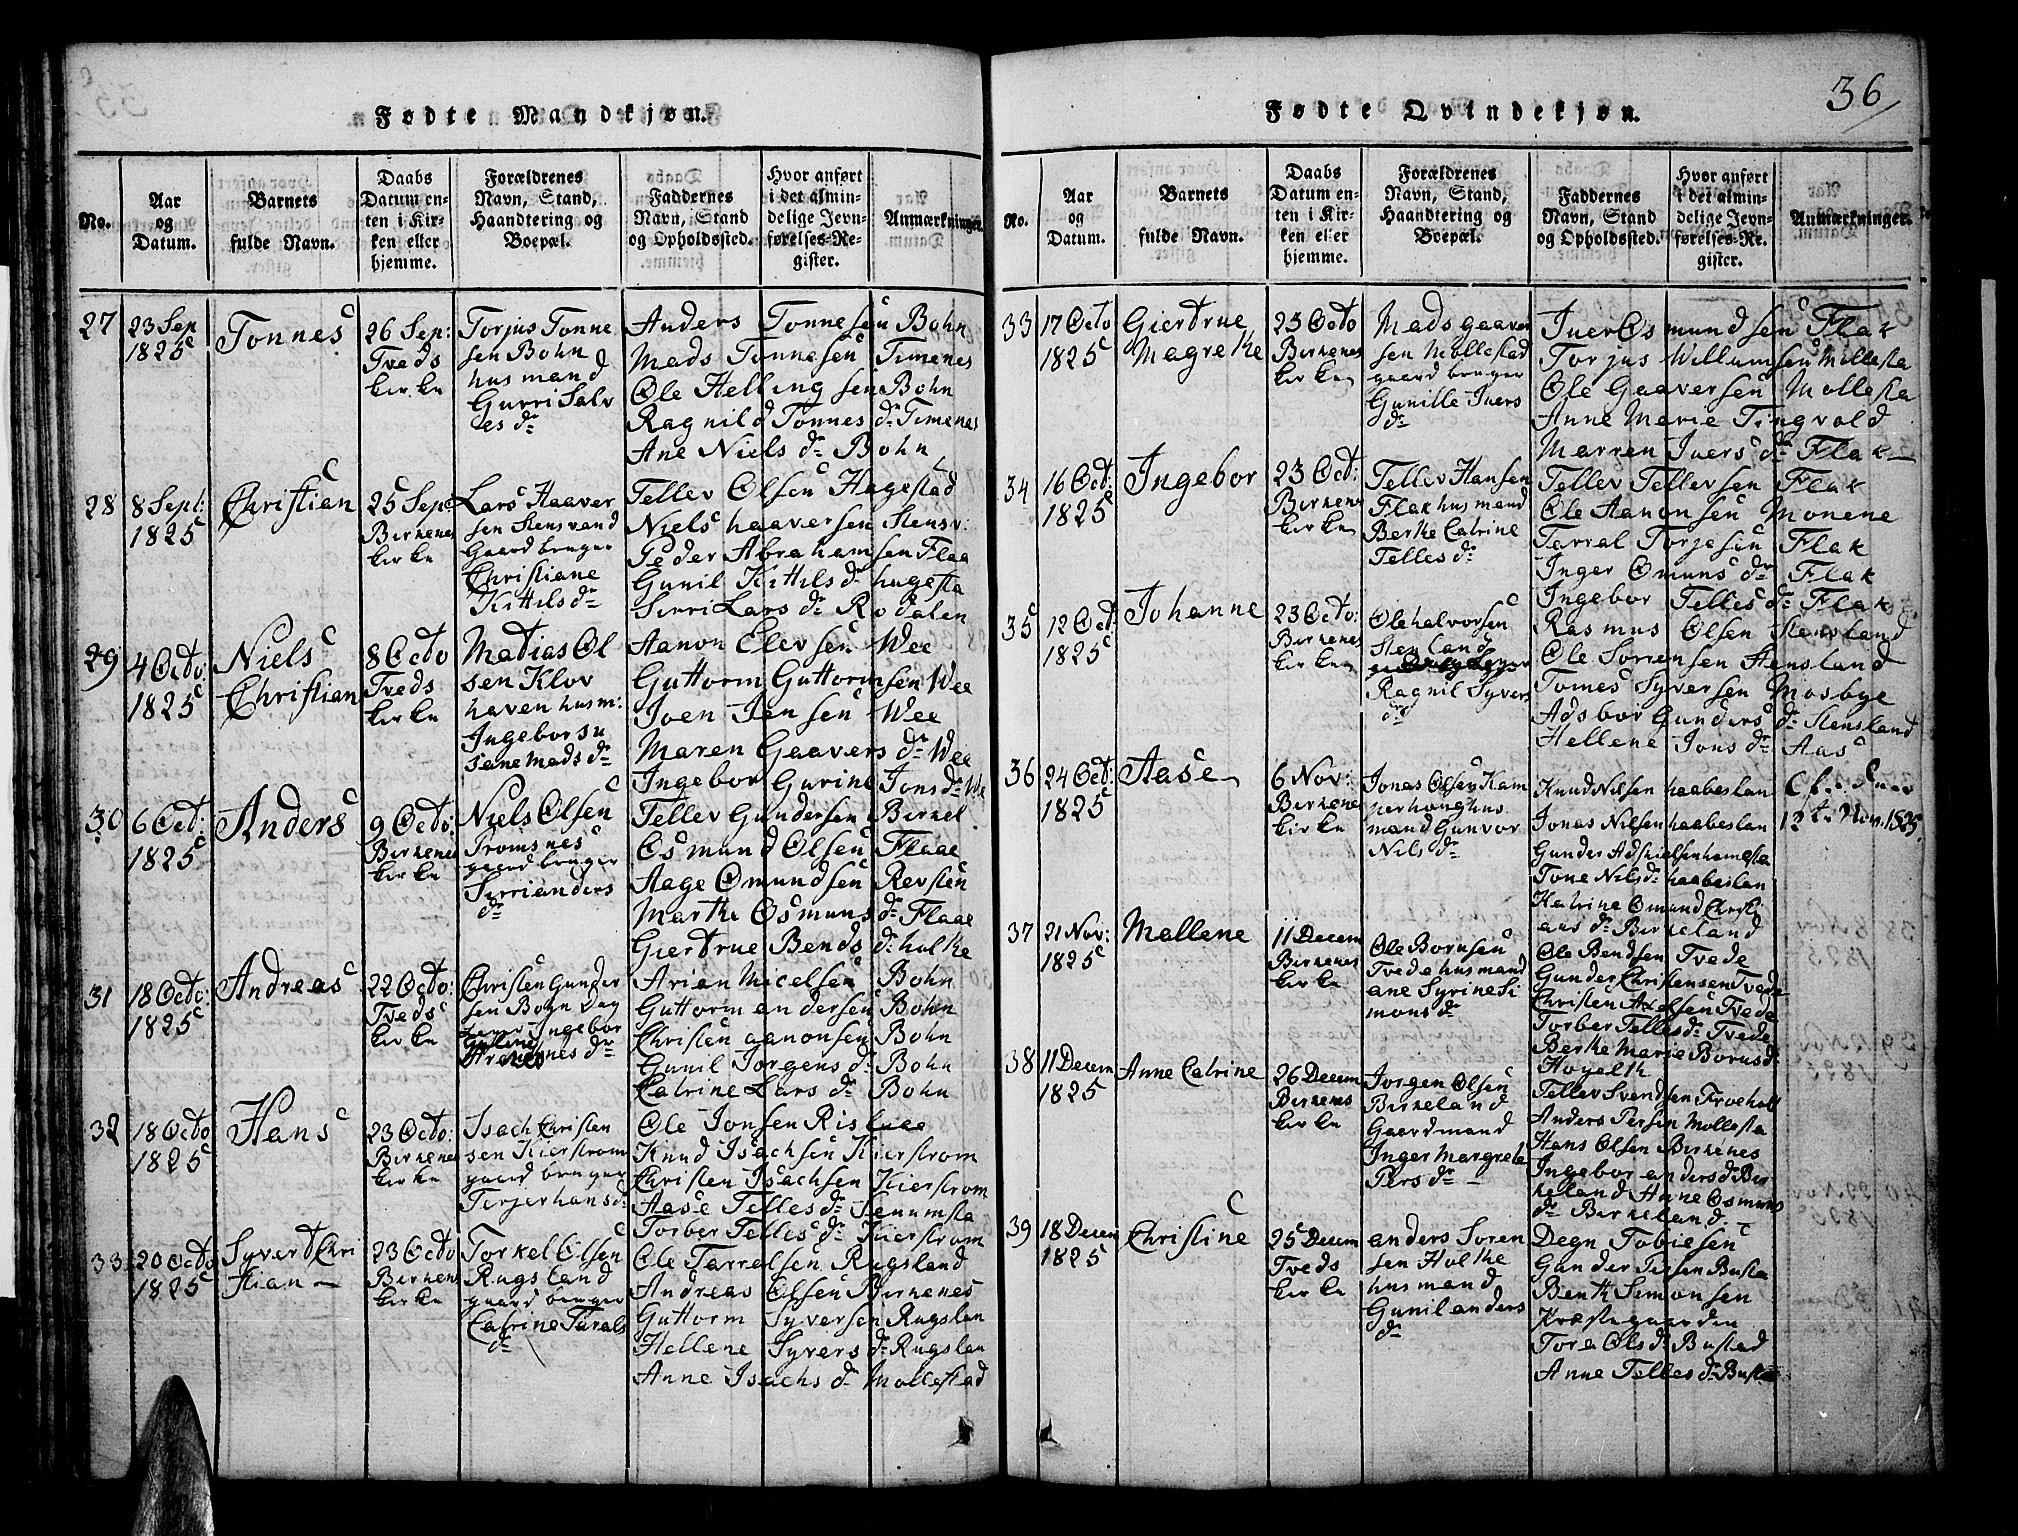 36
Fødte Mandkjøn.
No.
Aar og Datum.
Barnets fulde Navn.
Daabs Datum enten i Kirken eller hjemme.
Forældrenes Navn, Stand, Haandtering og Boepæl.
Faddernes Navn, Stand og Opholdssted.
Hvor anført i det almindelige Jevnførelses-Register.
Anmærkninger.
27
23 Sep
1825
Tonnes
26 Sep:
Tveds
kirke
Torjus Tonne
sen Bohn
husmand
Gurri Salv
es dr
Anders Tonnesen Bohn
Mads Tonnesen Timenes
Ole Hellingsen Bohn
Ragnild Tonnes dr Timenes
Ane Niels dr Bohn
28
8 Sept:
1825
Christian
25 Sep:
Birkenes
kirke
Lars Haaver
sen Stensvand
Gaardbruger
Christiane
Kittils dr
Tellev Olsen Hagestad
Niels haaversen Stensv:
Peder Abrahamsen Flaa
Gunil Kittils dr hugesta
Sirri Lars dr Rodalen
29
4 Octo
1825
Niels
Christian
8 Octo
Tveds
kirke
Matias Ol
sen Klov
haven husm:
Ingebor su
sane Mads dr
Aanon Elevsen Wee
Guttorm Guttormsen Wee
Joen Jensen Wee
Maren Gaavers dr Wee
Ingebor Gurine Jons dr We
30
6 Oct:
1825
Anders
9 Octo:
Birkenes
kirke
Niels Olsen
Tromsnes
gaardbruger
Sirri anders
dr
Tellev Gundersen Birkel
Osmund Olsen Flaae
Aage Omundsen Revsten
Marthe Osmuns dr Flaae
Giertrue Bends dr holthe
31
18 Octo:
1825
Andreas
22 Octo:
Tveds
kirke
Christen Gunder
sen Bohn
Ingebor
Arian Micelsen Bohn
Guttorm andersen Bohn
Christen aanonsen Bohn
Gunil Jorgens dr Bohn
Catrine Lars dr Bohn
32
18 Octo
1825
Hans
23 Octo:
Birkenes
kirke
Isach Christen
sen Kierstrom
gaardbruger
Terjer hans dr
Ole Jonsen Rislaae
Knud Isachsen Kierstrom
Christen Isachsen Kierstrom
Aase Telles dr Senumsta
Torber Telles dr Kierstrom
33
20 Octo
1825
Syvert Chri
stian
23 Octo
Birkenes
kirke
Torkel Olsen
Rugsland
gaardbruger
Catrine Tarals
dr
Ole Tarrelsen Rugsland
Andreas Olsen Birkenes
Guttorm Syversen Rugslan
Hellene Syvers dr Rugslan
Anne Isachs dr Mollestad
Fødte Qvindekjøn.
No.
Aar og Datum.
Barnets fulde Navn.
Daabs Datum enten i Kirken eller hjemme.
Forældrenes Navn, Stand, Haandtering og Boepæl.
Faddernes Navn, Stand og Opholdssted.
Hvor anført i det almindelige Jevnførelses-Register.
Anmærkninger.
33
17 Octo
1825
Giertrue
Magrethe
25 Octo
Birkenes
kirke
Mads Gaaver
sen Mollestad
gaardbruger
Gunille Ivers
dr
Iver Osmundsen Flak
Torjus Willumsen Mollesta
Ole Gaaversen Mollesta
Anne Marie Tingvold
Marren Ivers dr Flak
34
16 Oct:
1825
Ingebor
23 Oct:
Birkenes
kirke
Tellev Hansen
Flak husmand
Berthe Catrine
Telles dr
Tellev Tellevsen Flak
Ole Aanonsen Monene
Tarral Torjesen Flak
Inger Omuns dr Flak
Ingebor Telles dr Flak
35
12 Oct:
1825
Johanne
23 Octo:
Birkenes
kirke
Ole halvorsen
Stensland
Ragnil Syvers
dr
Rasmus Olsen Stensland
Ole Sorrensen Stensland
Tomes Syversen Mosbye
Adsbor Gunders dr Stensland
Hellene Jons dr Aas
36
24 Oct:
1825
Aase
6 Nov:
Birkenes
kirke
Jonas Olsen Kam
perhoug hus
mand Gunvor
Nils dr
Knud Nilsen haabeslan
Jonas Nilsen haabeslan
Gunder Adskielsen hamesta
Tone Nils dr haabeslan
Katrine Omund Christi
ans dr Birkeland
12te Nov. 1825.
37
21 Nov:
1825
Mallene
11 Decem
Birkenes
kirke
Ole Bornsen
Tvede husmand
ane Syrine Si
mons dr
Ole Bendsen Tvede
Gunder Christensen Tvede
Christen Axelsen Tvede
Torber Telles dr Tvede
Berthe Marie Borns dr
38
11 Decem
1825
Anne Catrine
26 Decem
Birkenes
kirke
Jorgen Olsen
Birkeland
Gaardmand
Inger Margrete
Pers dr
Tellev Svendsen
Anders Persen Mollesta
Hans Olsen Birkenes
Ingebor anders dr Bir
keland Anne Osmuns
dr Birkeland.
39
18 Decem
1825
Christine
25 Decem
Tveds
kirke
anders Soren
sen Holthe
husmand
Gunil anders
dr
Degn Tobiesen
Gunder Tersen Busta
Benth Simonsen
Præstegaarden
Tore Ols dr Bustad
Anne Telles dr Busta